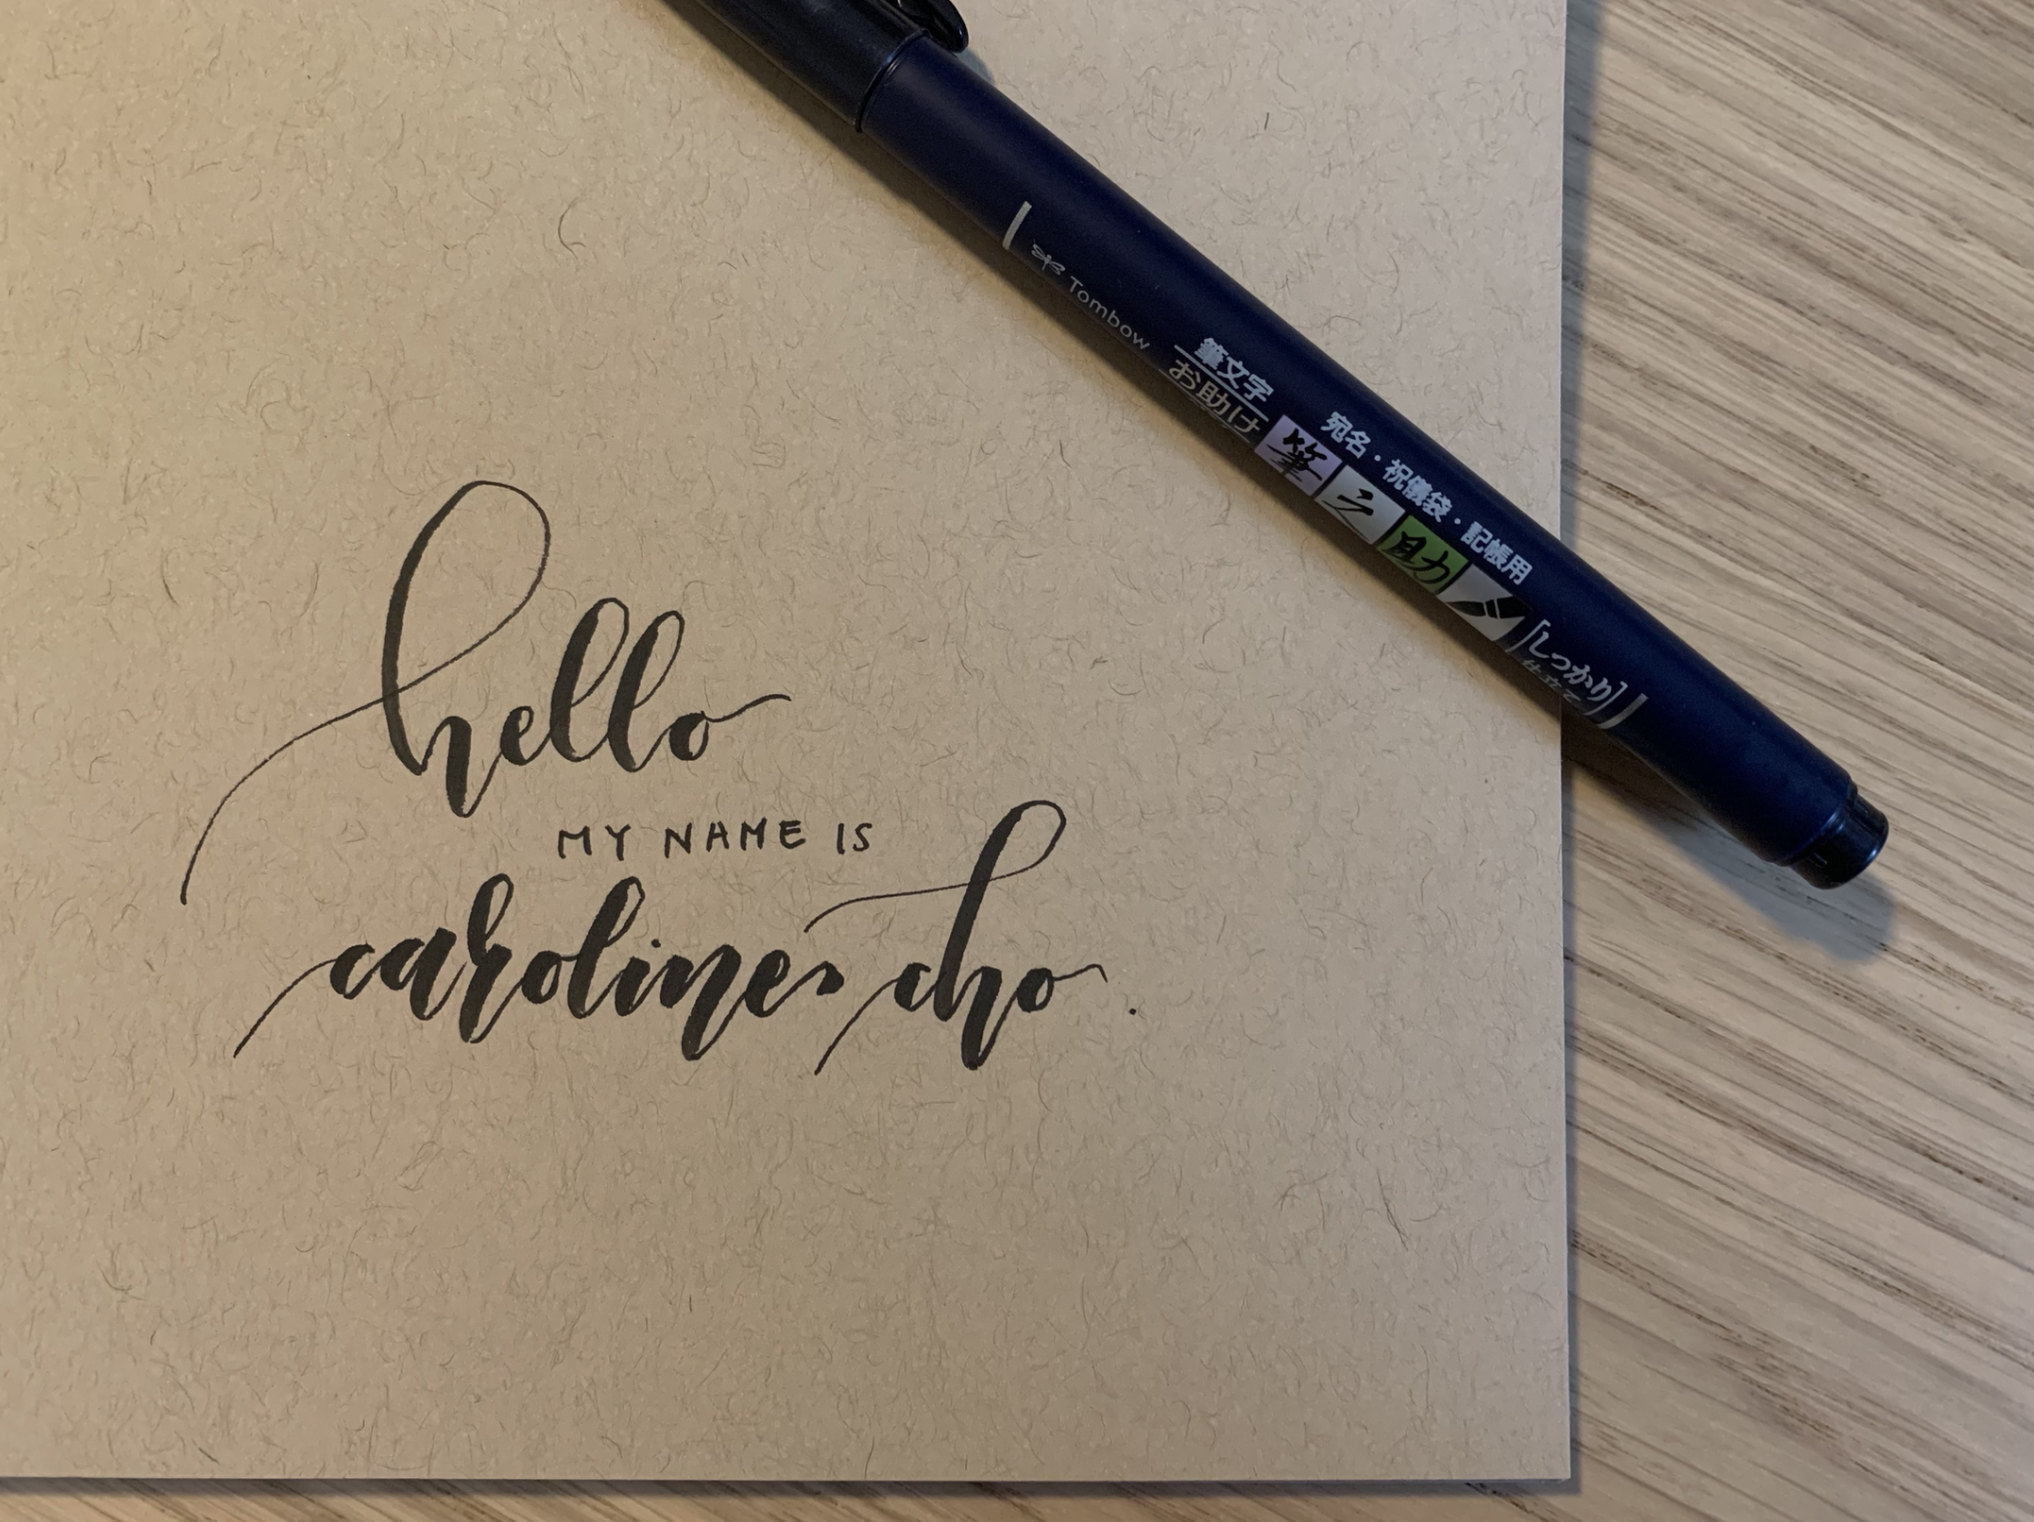 hello
MY NAME IS
caroline cho.
Tombow
筆文字
お助け
宛名・祝儀袋・記帳用
筆之助
[しっかり]
仕立て